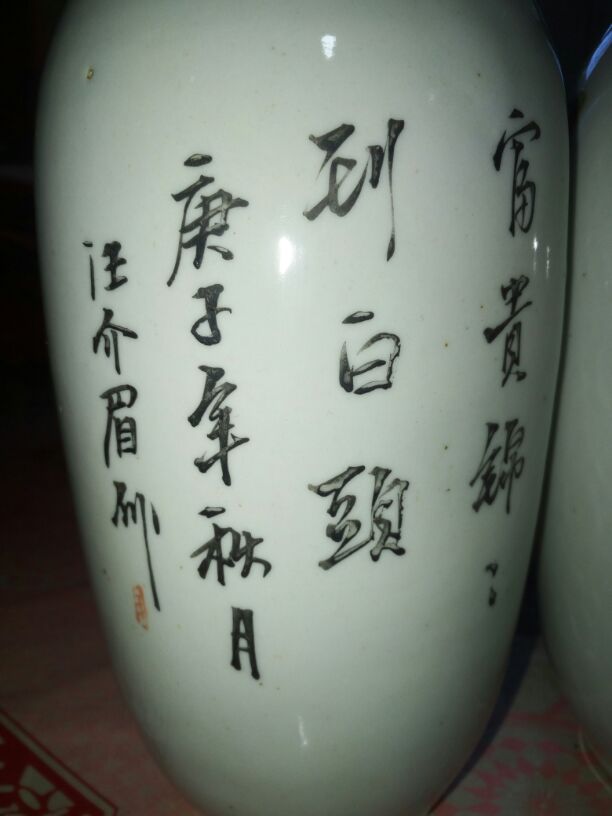 富貴錦〻
到白頭
庚子年秋月
汪介眉作